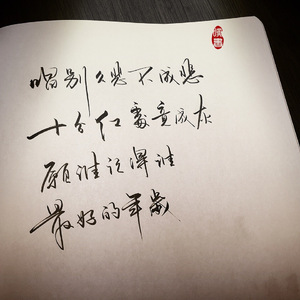 唱别久悲不成悲
十分红处竟成灰
愿谁记得谁
最好的年岁